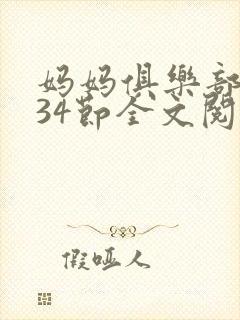 妈妈俱樂部
34節全文閱
假啞人